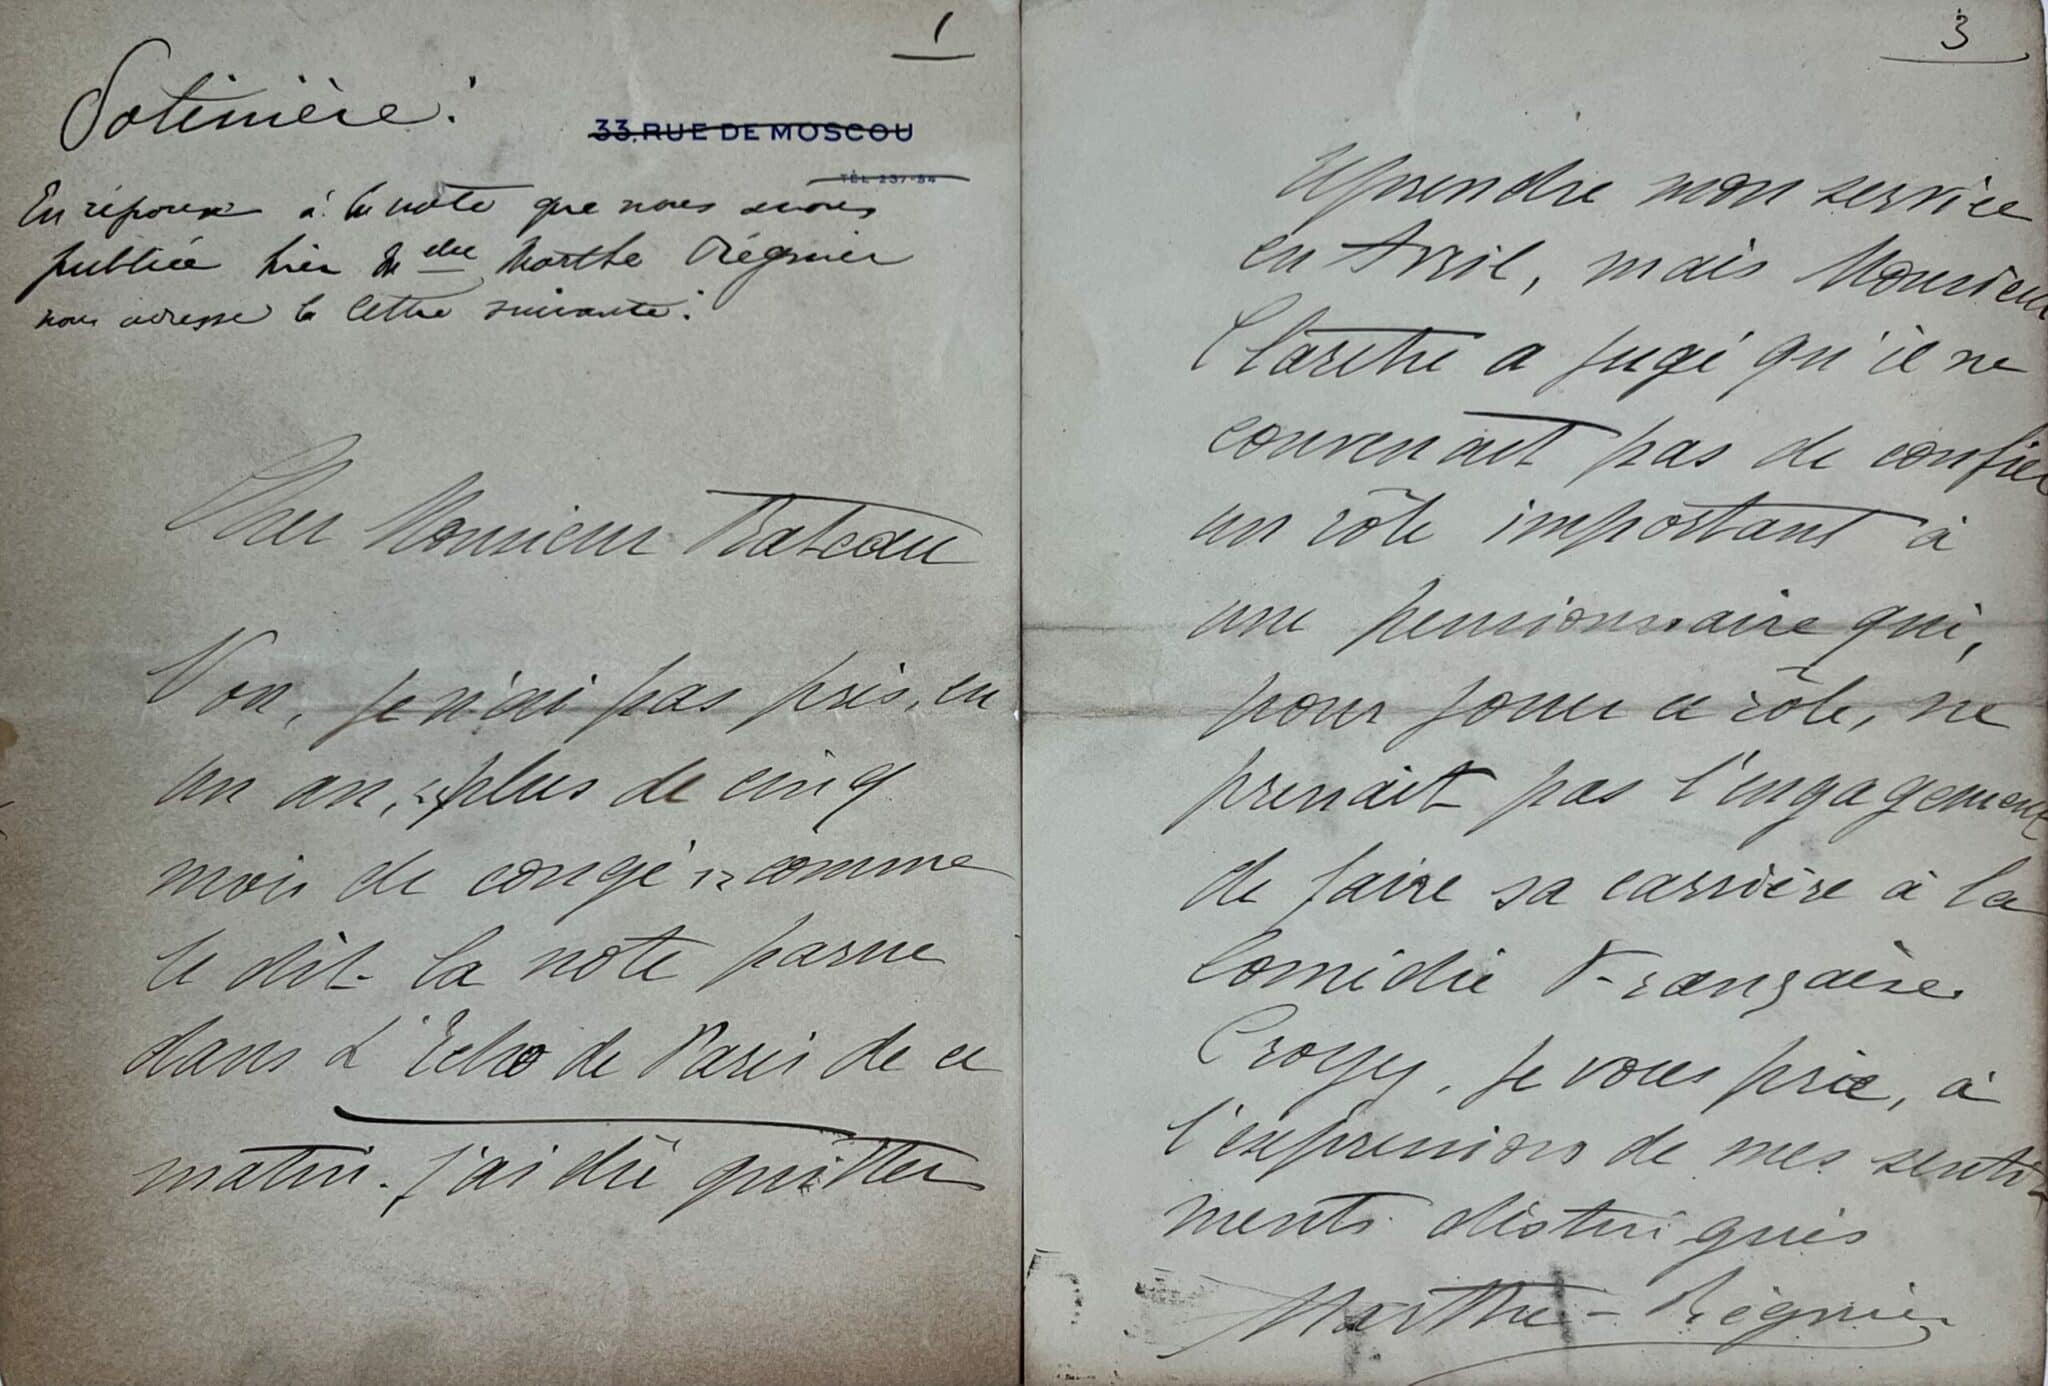 1
Potinière :
33, RUE DE MOSCOU
TÉL 237-54
En réponse à la note que nous avons
publiée hier Mlle Marthe Régnier
nous adresse la lettre suivante :
Cher Monsieur Bateau
Non, je n'ai pas pris, en
un an, "plus de cinq
mois de congé" comme
le dit la note parue
dans L'Echo de Paris de ce
matin. J'ai dû quitter
3
reprendre mon service
en Avril, mais Monsieur
Claretie a jugé qu'il ne
convenait pas de confier
un rôle important à
une pensionnaire qui,
pour jouer ce rôle, ne
prenait pas l'engagement
de faire sa carrière à la
Comédie Française.
Croyez, je vous prie, à
l'expression de mes senti-
ments distingués
Marthe-Régnier